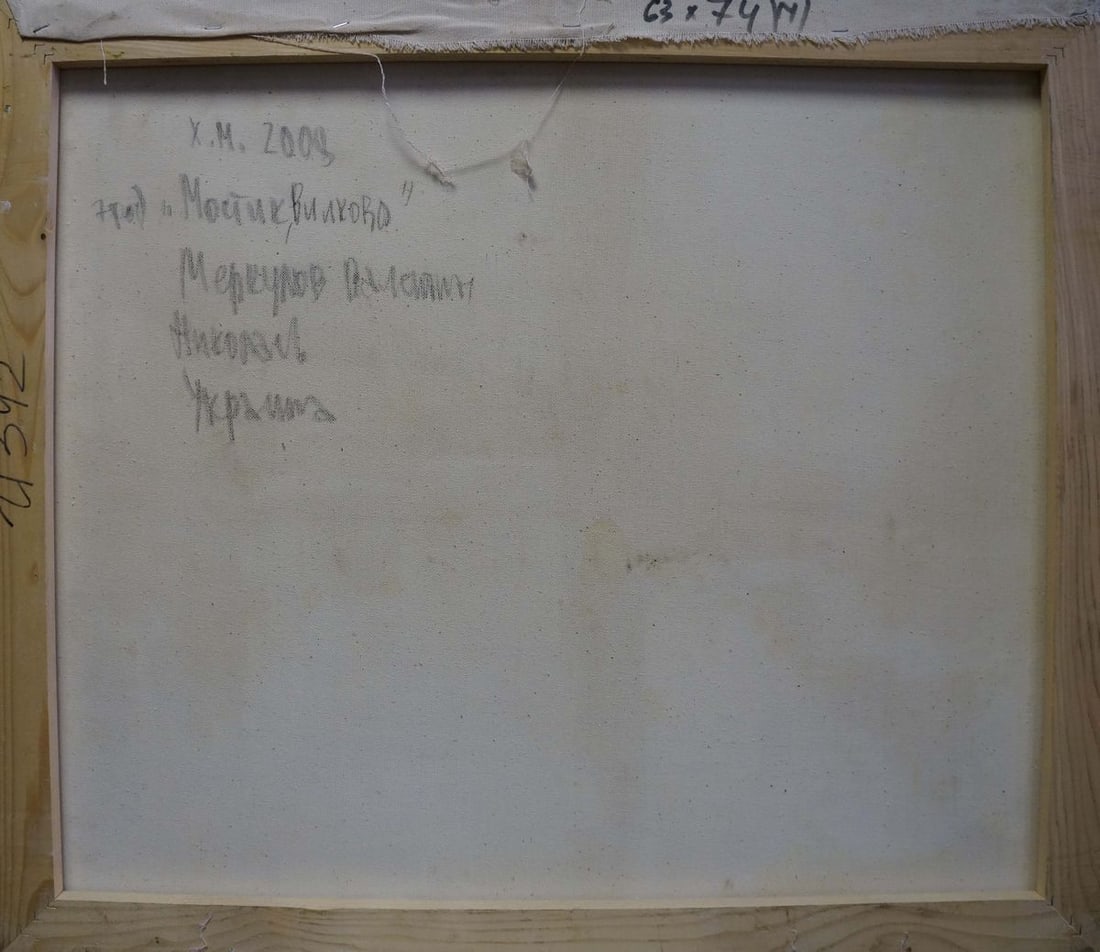 63 x 74
Х.М. 2009
"Мостик, Вилково"
Меркулов Валентин
Николаев
Украина
4342